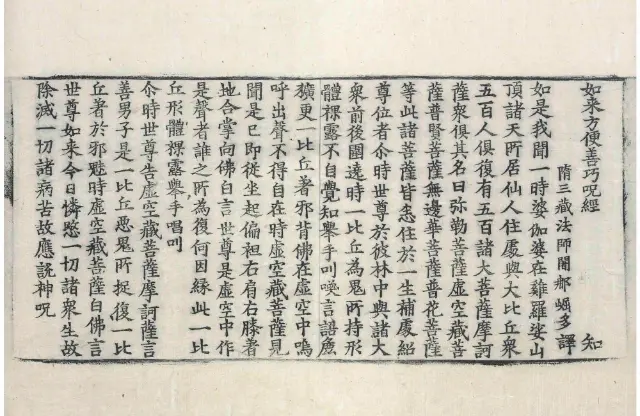 如来方便善巧呪經 知
隋三藏法師闍那崛多譯
如是我聞一時婆伽婆在雞羅娑山
頂諸天所居仙人住處與大比丘衆
五百人俱復有五百諸大菩薩摩訶
薩衆俱其名曰弥勒菩薩虛空藏菩
薩普賢菩薩無邊華菩薩普花菩薩
等此諸菩薩皆悉住於一生補處紹
尊位者尒時世尊於彼林中與諸大
衆前後圍遶時一比丘為鬼所持形
體裸露不自覺知舉手叫喚言語麁
獷更一比丘著邪背佛在虛空中嗚
呼出聲不得自在時虛空藏菩薩見
聞是已即從坐起偏袒右肩右膝著
地合掌向佛白言世尊是虛空中作
是聲者誰之所為復何因緣此一比
丘形體裸露舉手唱叫
尒時世尊告虛空藏菩薩摩訶薩言
善男子是一比丘惡鬼所捉復一比
丘著於邪魅時虛空藏菩薩白佛言
世尊如來今日憐愍一切諸衆生故
除滅一切諸病苦故應説神呪